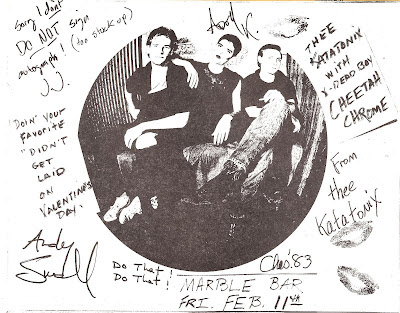 Sorry I don't
DO NOT sign
autograph! (too stuck up)
J.J.
THEE
KATATONIX
WITH
X-DEAD BOY
CHEETAH
CHROME
"DOIN' YOUR
FAVORITE
"DIDN'T
GET
LAID
ON
VALENTINES
DAY"
From
thee
Katatonix
Andy
Do That!
Do That!
'83
MARBLE BAR
FRI. FEB. 11TH